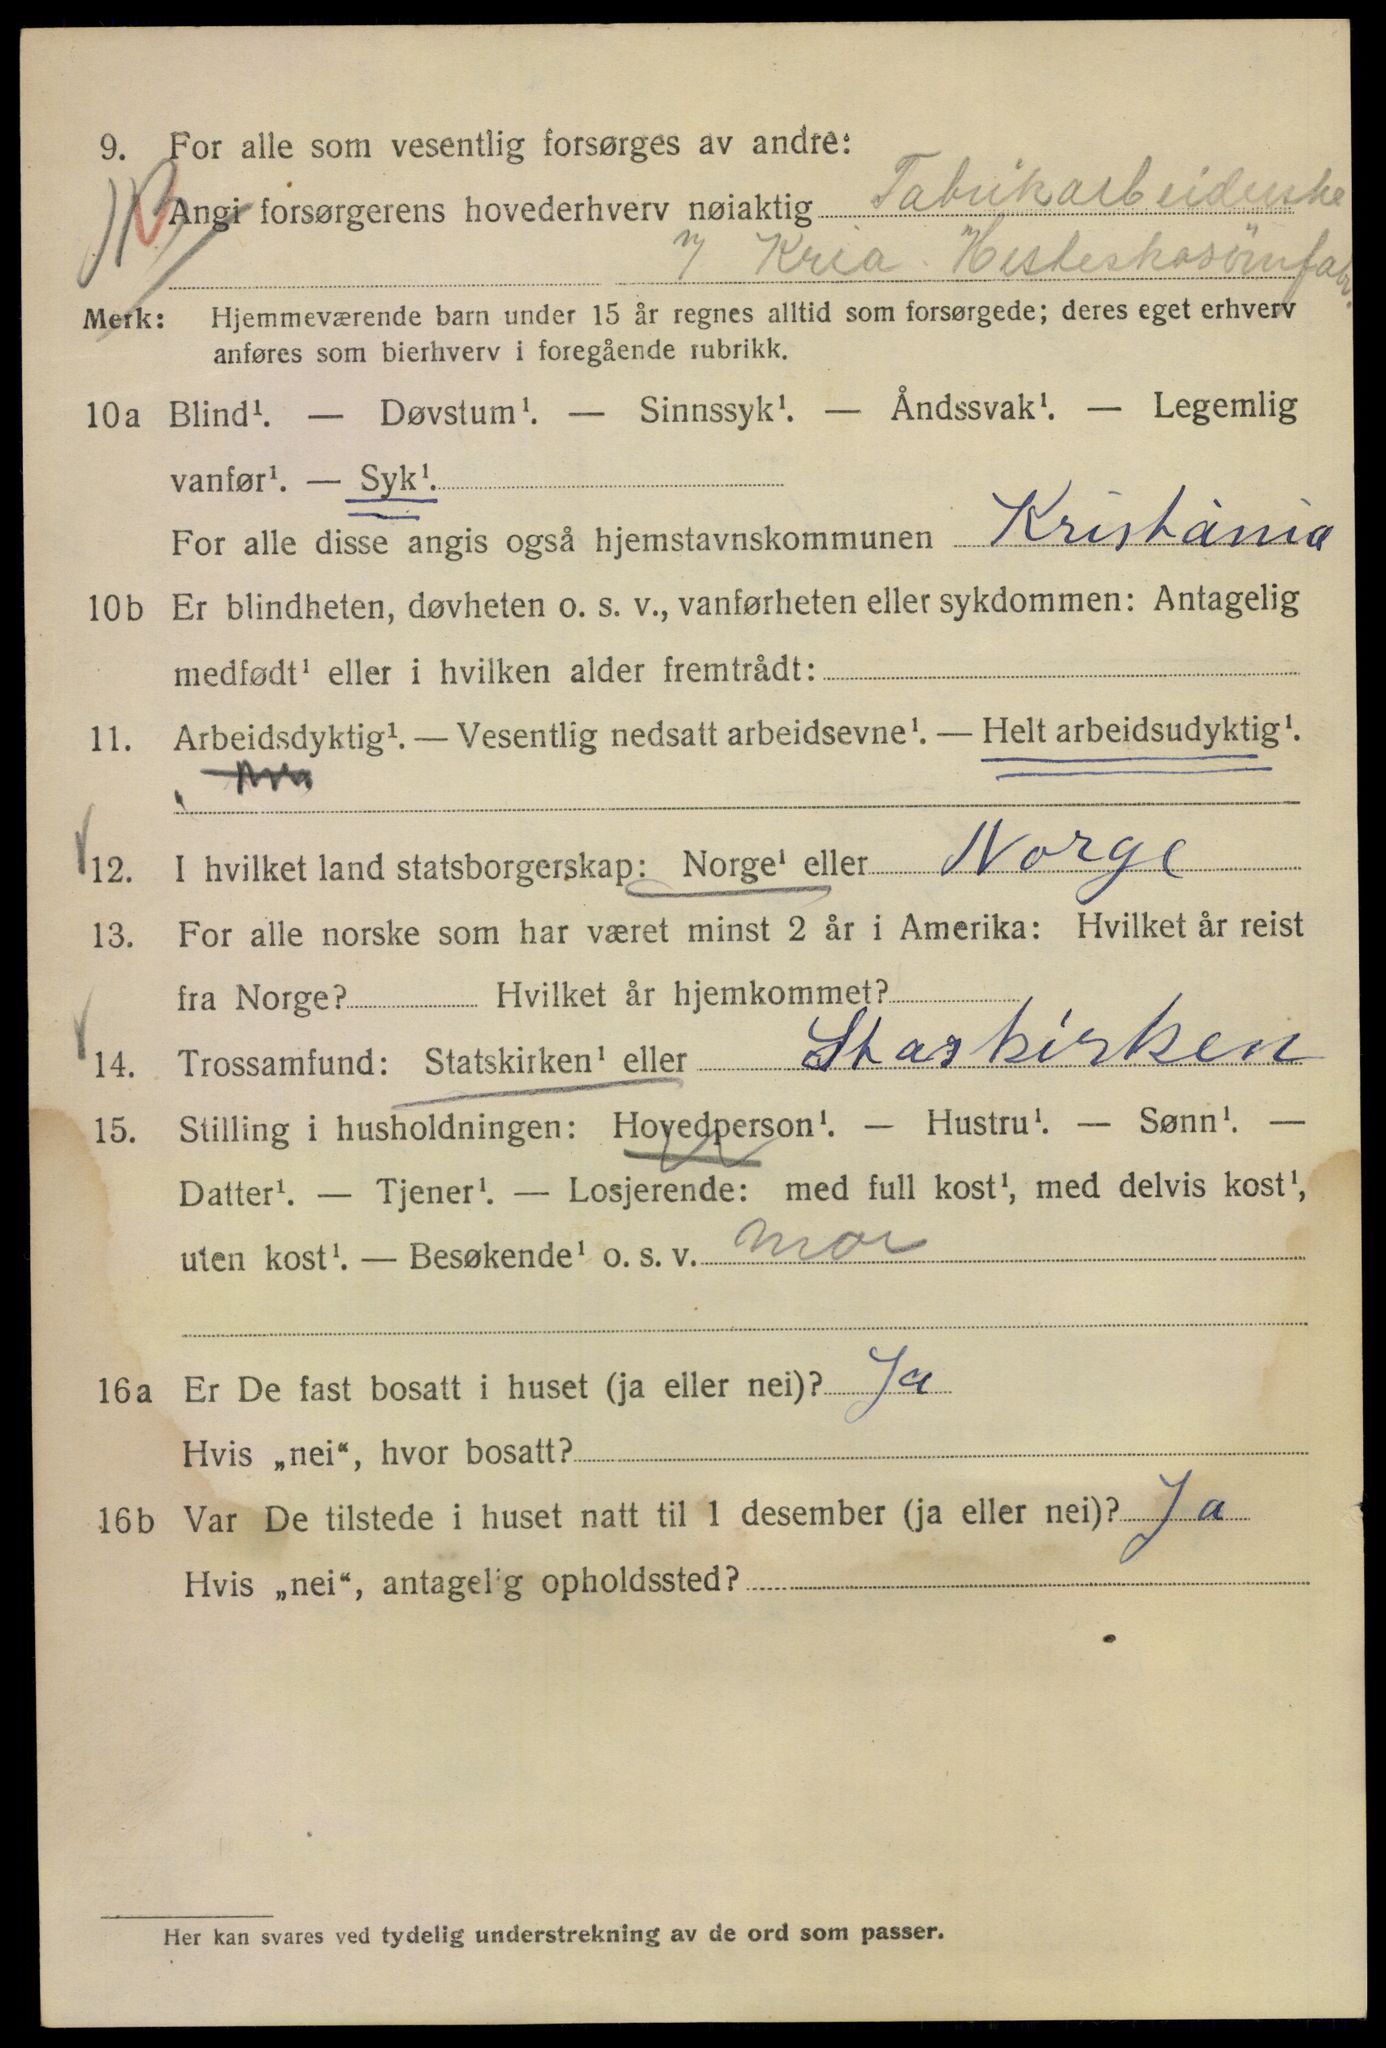 9. For alle som vesentlig forsørges av andre:
Angi forsørgerens hovederhverv nøiaktig Fabrikarbeiderske
v/ Kria Hesteskosömfabr.
Merk: Hjemmeværende barn under 15 år regnes alltid som forsørgede; deres eget erhverv
anføres som bierhverv i foregående rubrikk.
10a Blind¹. — Døvstum¹. — Sinnssyk¹. — Åndssvak¹. — Legemlig
vanfør¹. — Syk¹.
For alle disse angis også hjemstavnskommunen Kristánia
10b Er blindheten, døvheten o. s. v., vanførheten eller sykdommen: Antagelig
medfødt¹ eller i hvilken alder fremtrådt:
11. Arbeidsdyktig¹. — Vesentlig nedsatt arbeidsevne¹. — Helt arbeidsudyktig¹.
12. I hvilket land statsborgerskap: Norge¹ eller Norge
13. For alle norske som har været minst 2 år i Amerika: Hvilket år reist
fra Norge? Hvilket år hjemkommet?
14. Trossamfund: Statskirken¹ eller Staskirken
15. Stilling i husholdningen: Hovedperson¹. — Hustru¹. — Sønn¹. —
Datter¹. — Tjener¹. — Losjerende: med full kost¹, med delvis kost¹,
uten kost¹. — Besøkende¹ o. s. v. mor
16a Er De fast bosatt i huset (ja eller nei)? Ja
Hvis „nei“, hvor bosatt?
16b Var De tilstede i huset natt til 1 desember (ja eller nei)? Ja
Hvis „nei“, antagelig opholdssted?
Her kan svares ved tydelig understrekning av de ord som passer.